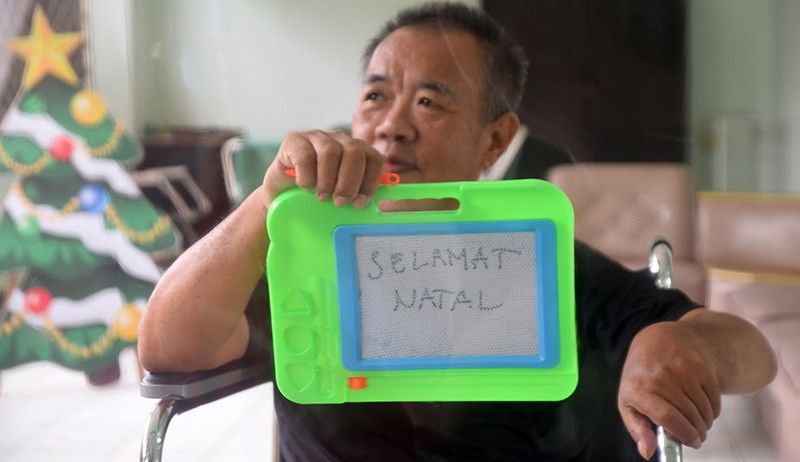 SELAMAT
NATAL